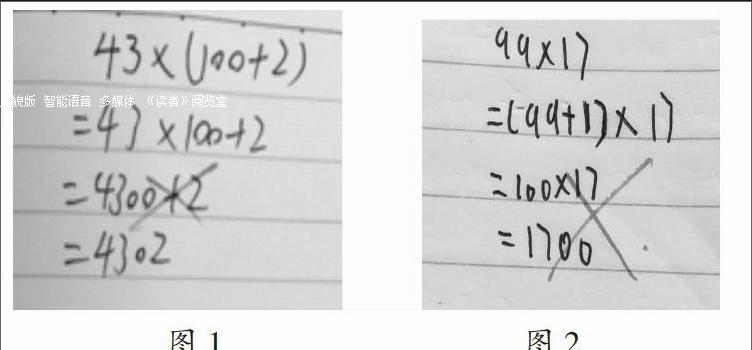 43×(100+2)
=43×100+2
=4300+2
=4302
图 1
99×17
=(99+1)×17
=100×17
=1700
图 2
智能语音 多媒体 《读者》阅览室